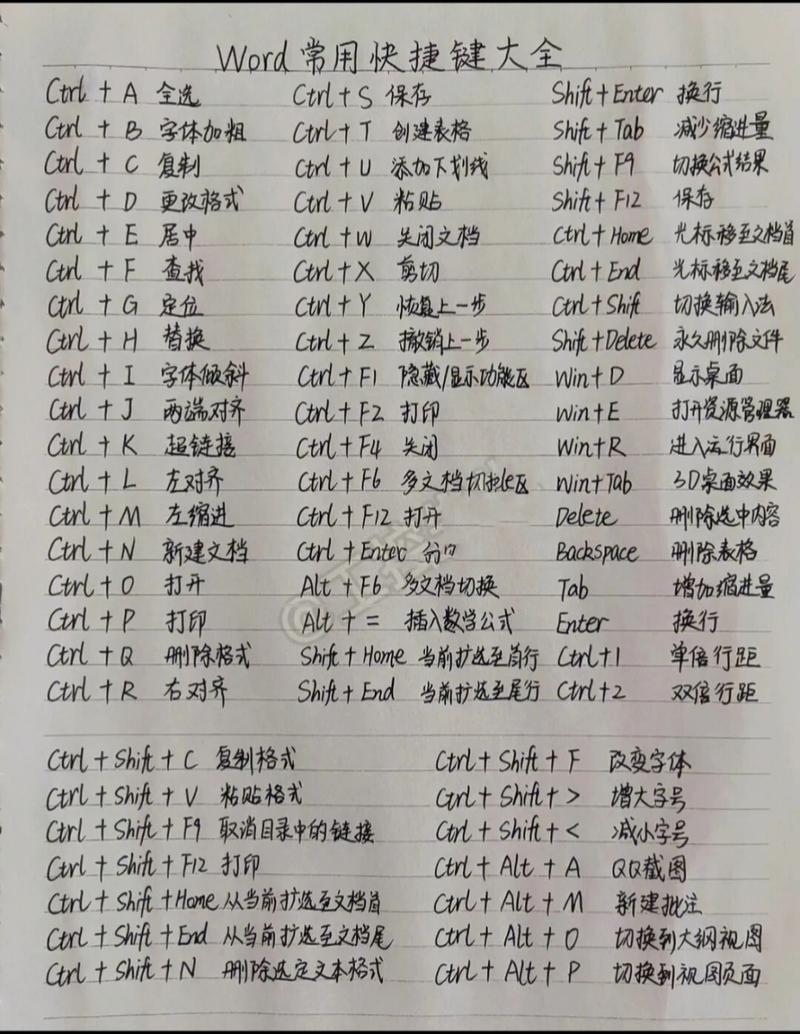 Word常用快捷键大全
Ctrl + A 全选 Ctrl + S 保存 Shift + Enter 换行
Ctrl + B 字体加粗 Ctrl + T 创建表格 Shift + Tab 减少缩进量
Ctrl + C 复制 Ctrl + U 添加下划线 Shift + F9 切换公式结果
Ctrl + D 更改格式 Ctrl + V 粘贴 Shift + F12 保存
Ctrl + E 居中 Ctrl + W 关闭文档 Ctrl + Home 光标移至文档首
Ctrl + F 查找 Ctrl + X 剪切 Ctrl + End 光标移至文档尾
Ctrl + G 定位 Ctrl + Y 恢复上一步 Ctrl + Shift 切换输入法
Ctrl + H 替换 Ctrl + Z 撤销上一步 Shift + Delete 永久删除文件
Ctrl + I 字体倾斜 Ctrl + F1 隐藏/显示功能区 Win + D 显示桌面
Ctrl + J 两端对齐 Ctrl + F2 打印 Win + E 打开资源管理器
Ctrl + K 超链接 Ctrl + F4 关闭 Win + R 进入运行界面
Ctrl + L 左对齐 Ctrl + F6 多文档切 区 Win + Tab 3D桌面效果
Ctrl + M 左缩进 Ctrl + F12 打开 Delete 删除选中内容
Ctrl + N 新建文档 Ctrl + Enter Backspace 删除表格
Ctrl + O 打开 Alt + F6 多文档切换 Tab 增加缩进量
Ctrl + P 打印 Alt + = 插入数学公式 Enter 换行
Ctrl + Q 删除格式 Shift + Home 当前扩选至首行 Ctrl + 1 单倍行距
Ctrl + R 右对齐 Shift + End 当前扩选至尾行 Ctrl + 2 双倍行距
Ctrl + Shift + C 复制格式 Ctrl + Shift + F 改变字体
Ctrl + Shift + V 粘贴格式 Ctrl + Shift + > 增大字号
Ctrl + Shift + F9 取消目录中的链接 Ctrl + Shift + < 减小字号
Ctrl + Shift + F12 打印 Ctrl + Alt + A QQ截图
Ctrl + Shift + Home 从当前扩选至文档首 Ctrl + Alt + M 新建批注
Ctrl + Shift + End 从当前扩选至文档尾 Ctrl + Alt + O 切换到大纲视图
Ctrl + Shift + N 删除选定文本格式 Ctrl + Alt + P 切换到视图页面